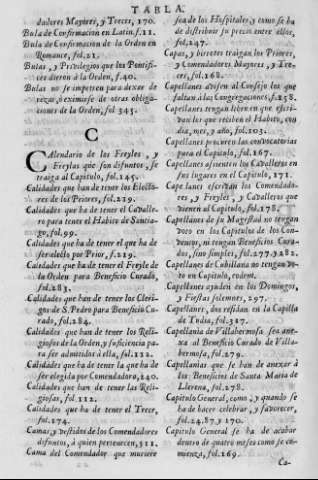 TABLA.
dadores Mayores, y Treces, 170.
Bula de Confirmacion en Latin, f.11.
Bula de Confirmacion de la Orden en
Romance, fol.21.
Bulas, y Privilegios que los Pontifi-
ces dieron à la Orden, f.40.
Bulas no se impetren para dexar de
rezar, ò eximirse de otras obliga-
ciones de la Orden, fol 345.
C
CAlendario de los Freyles, y
y Freylas que son difuntos, se
traiga al Capitulo, fol.145.
Calidades que han de tener los Electo-
res de los Priores, fol.219.
Calidades que ha de tener el Cavalle-
ro para tener el Habito de Santia-
go, fol.99.
Calidades que ha de tener el que ha de
ser electo por Prior, fol.219.
Calidades que ha de tener el Freyle de
la Orden para Beneficio Curado,
fol.283.
Calidades que han de tener los Cleri-
gos de S. Pedro para Beneficio Cu-
rado, fol.284.
Calidades que han de tener los Reli-
giosos de la Orden, y suficiencia pa-
ra ser admitidos à ella, fol.112.
Calidades que ha de tener la que ha de
ser elegida por Comendadora, 240.
Calidades que han de tener las Reli-
giosas, fol.112.
Calidades que ha de tener el Trece,
fol.174.
Camas, y vestidos de los Comendadores
difuntos, à quien pertenecen, 311.
Cama del Comendador que muriere
sea de los Hospitales, y como se ha
de distribuir su precio entre ellos,
fol.247.
Capas, y birretes traigan los Priores,
y Comendadores Mayores, y Tre-
ces, fol.168.
Capellanes avisen al Consejo los que
faltan à las Congregaciones, f.258.
Capellanes tengan libro en que escri-
van los que reciben el Habito, con
dia, mes, y año, fol.103.
Capellanes procuren las convocatorias
para el Capitulo, fol.167.
Capellanes assienten los Cavalleros en
sus lugares en el Capitulo, 171.
Capellanes escrivan los Comendado-
res, y Freyles, y Cavalleros que
vienen al Capitulo, fol.178.
Capellanes de su Magestad no tengan
voto en los Capitulos de los Con-
ventos, ni tengan Beneficios Cura-
dos, sino simples, fol.277. y 282.
Capellanes de Cubillana no tengan vo-
to en Capitulo, eodem.
Capellanes ayuden en los Domingos,
y Fiestas solemnes, 297.
Capellanes, dos residan en la Capilla
de Tudia, fol.317.
Capellania de Villahermosa sea ane-
xa al Beneficio Curado de Villa-
hermosa, fol.279.
Capellanias que se han de anexar à
los Beneficios de Santa Maria de
Llerena, fol.278.
Capitulo General, como, y quando se
ha de hacer celebrar, y favorecer,
fol.24.87. y 170.
Capitulo General se ha de acabar
dentro de quatro meses como se co-
mienza, fol.169.
Ca-